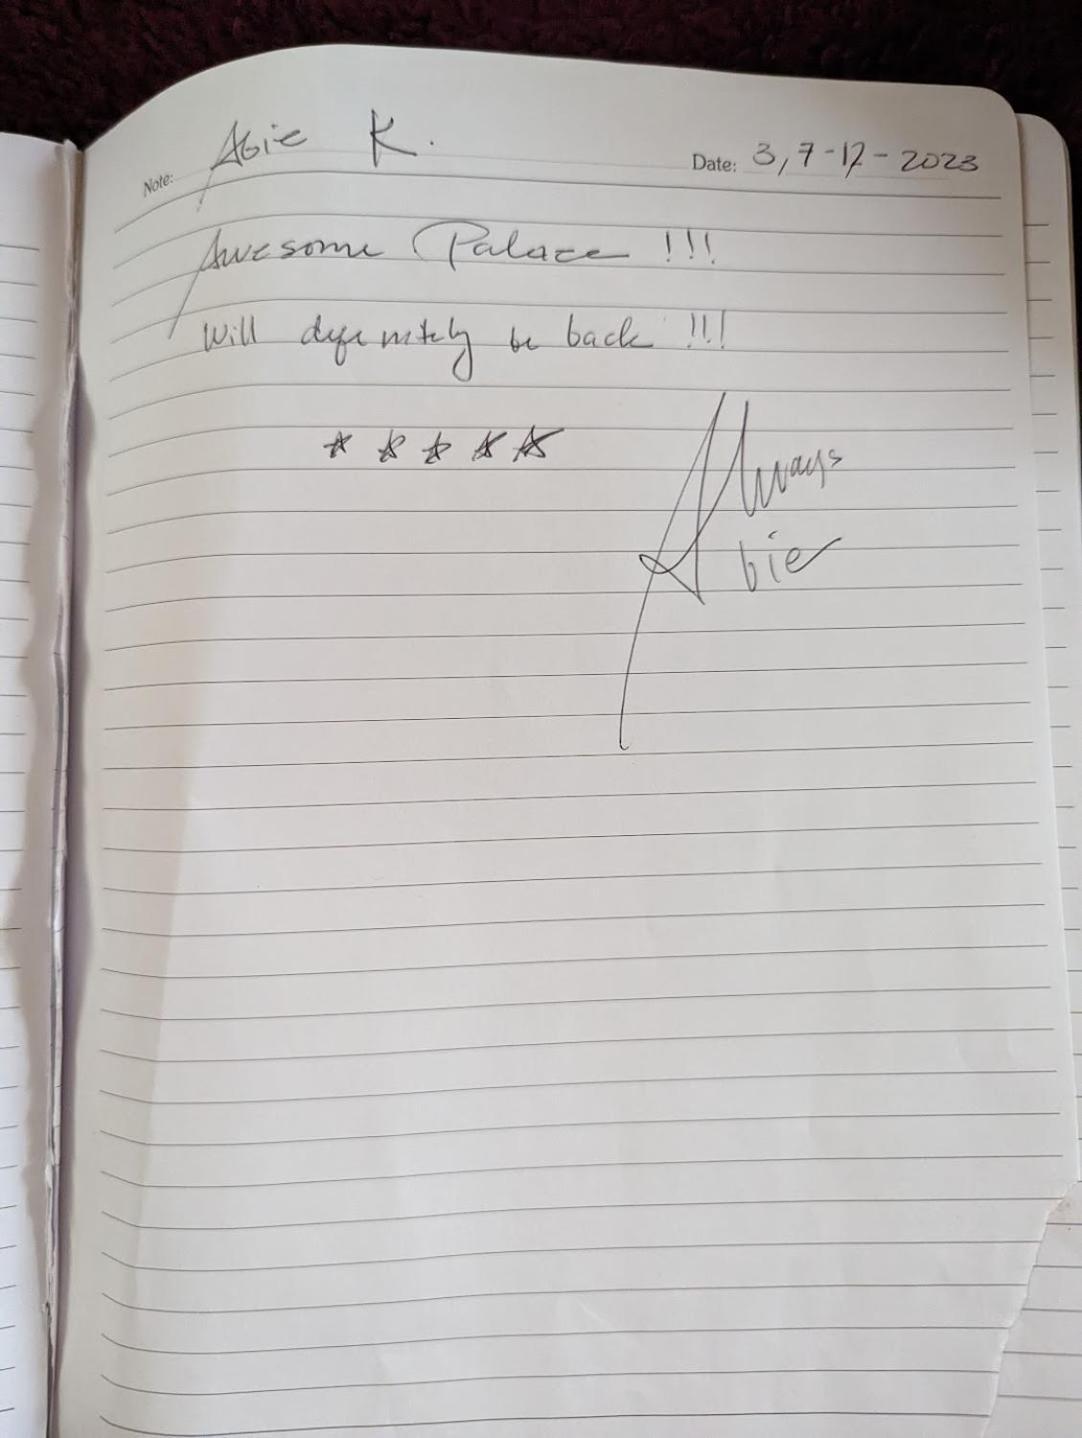 Abie K.
Note:
Date: 3,7-12-2023
Awesome Palace !!!
Will definitely be back !!!
Always
Abie